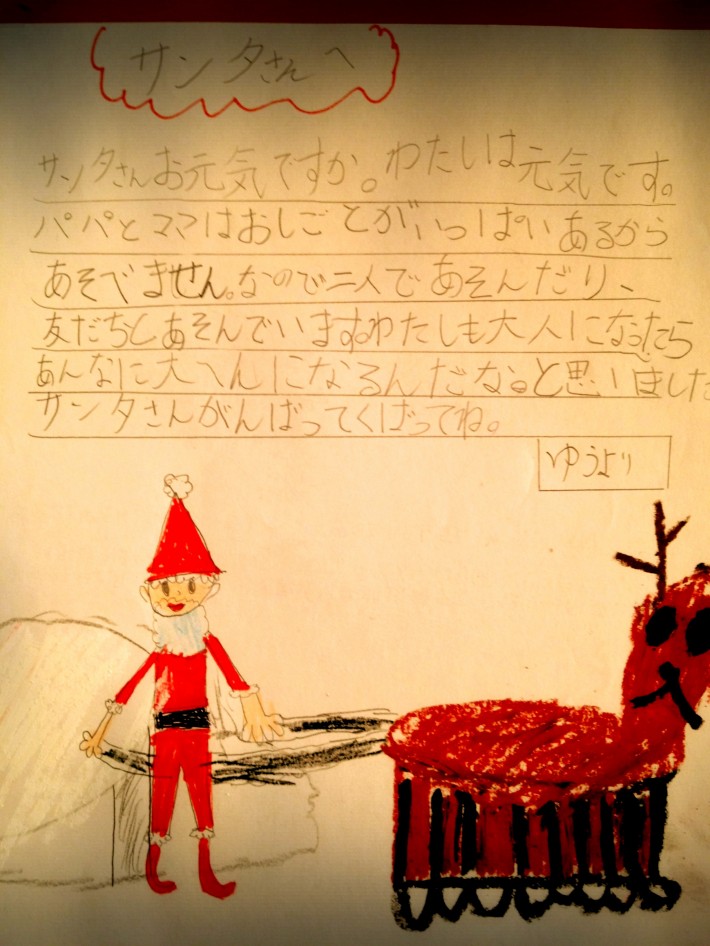 サンタさんへ
サンタさんお元気ですか。わたしは元気です。
パパとママはおしごとがいっぱいあるから
あそべません。なので二人であそんだり、
友だちとあそんでいます。わたしも大人になったら
あんなに大へんになるんだな。と思いました
サンタさんがんばってくばってね。
ゆうより